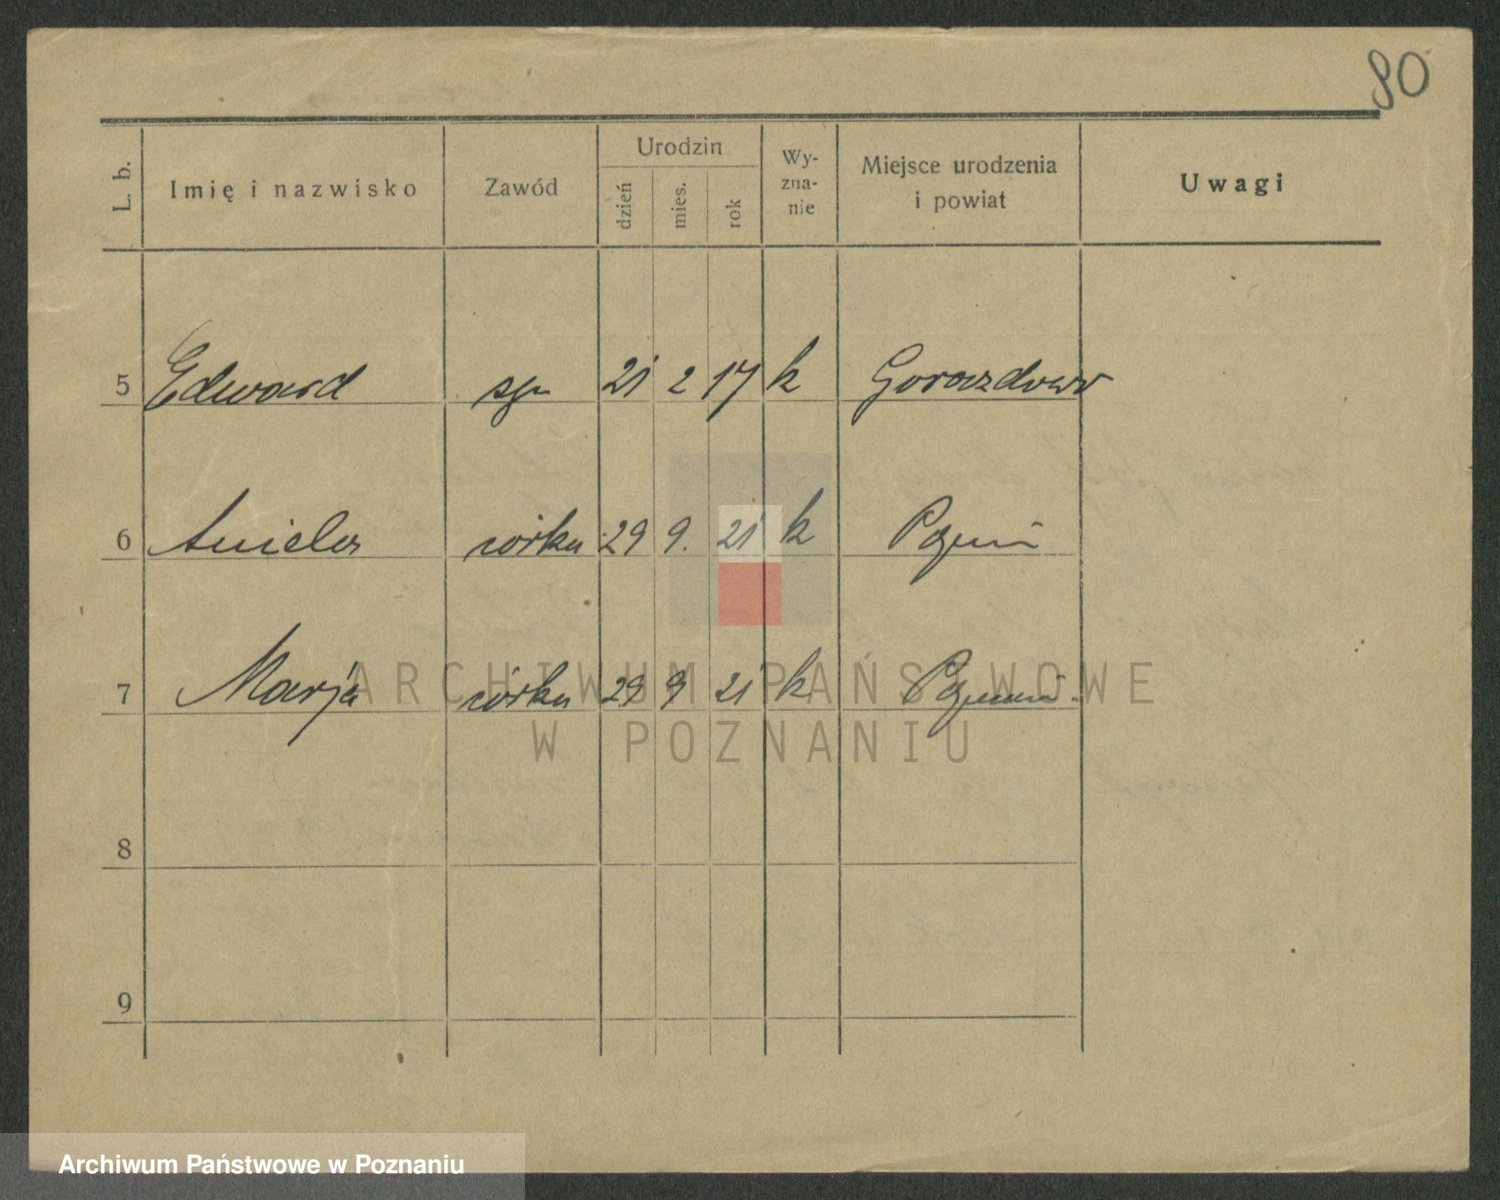 80
L. b. Imię i nazwisko Zawód Urodzin dzień mies. rok Wy-zna-nie Miejsce urodzenia i powiat Uwagi
5 Edward syn 21 2 17 k Gorazdowo
6 Aniela córka 29 9. 21 k
7 Marja córka 29 9 21 k
8
9
ARCHIWUM PAŃSTWOWE
W POZNANIU
Archiwum Państwowe w Poznaniu